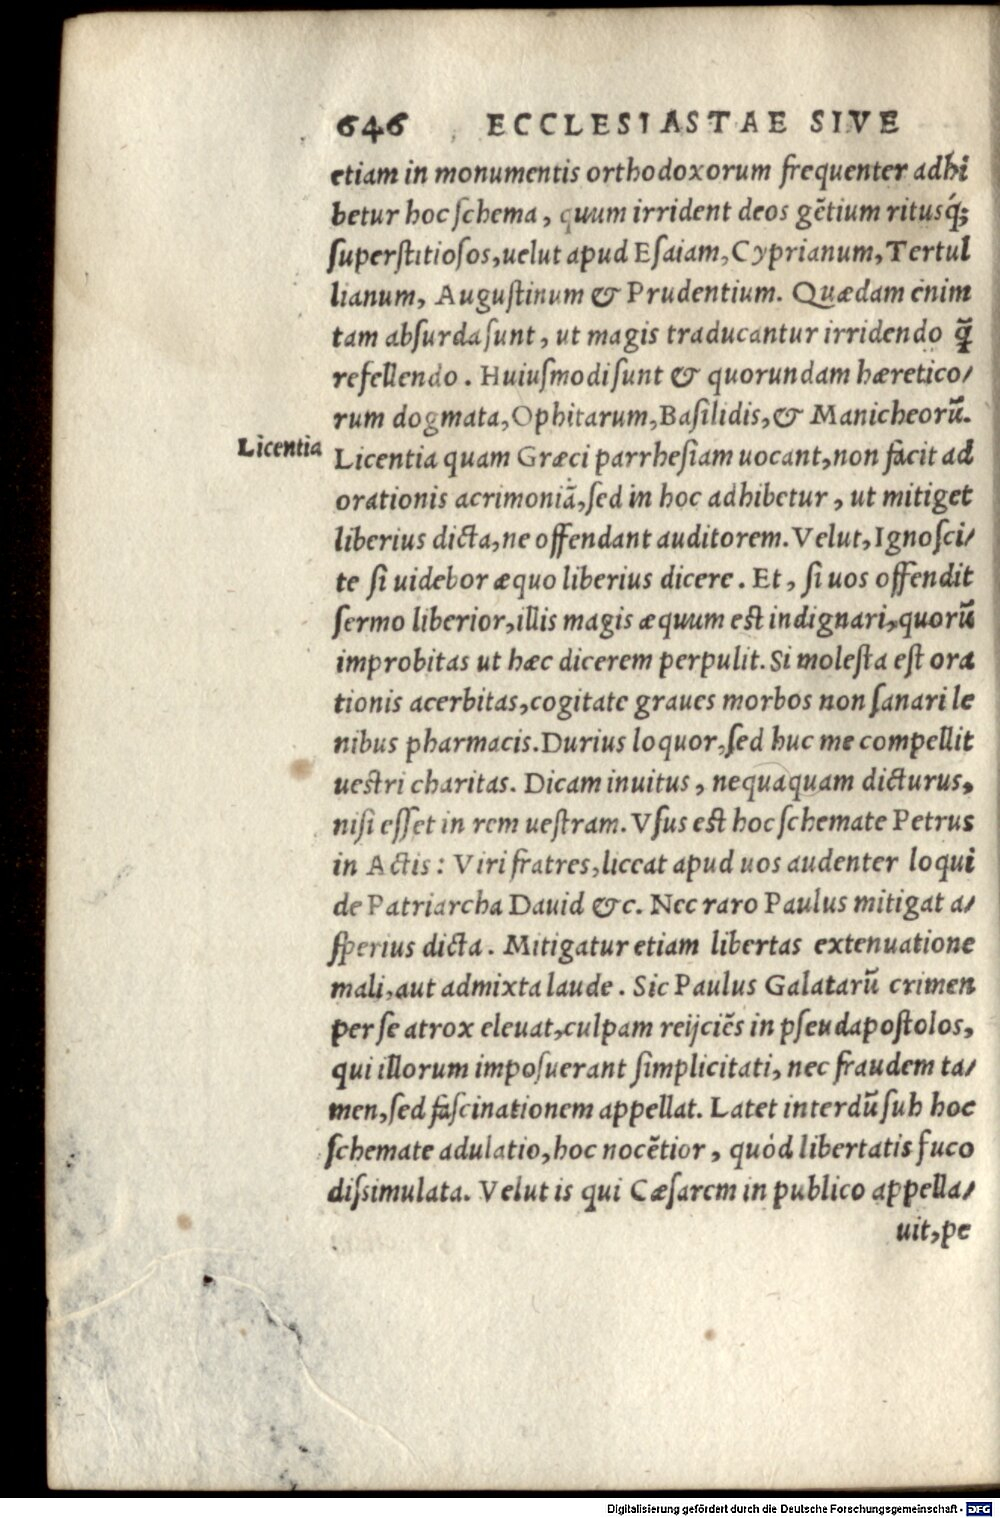 646 ECCLESIASTAE SIVE
etiam in monumentis orthodoxorum frequenter adhi
betur hoc ſchema, quum irrident deos gẽtium ritusq́;
ſuperſtitioſos, uelut apud Eſaiam, Cyprianum, Tertul
lianum, Auguſtinum & Prudentium. Quædam enim
tam abſurda ſunt, ut magis traducantur irridendo q̃
refellendo. Huiuſmodi ſunt & quorundam hæretico/
rum dogmata, Ophitarum, Baſilidis, & Manicheorũ.
Licentia
Licentia quam Græci parrheſiam uocant, non facit ad
orationis acrimoniã, ſed in hoc adhibetur, ut mitiget
liberius dicta, ne offendant auditorem. Velut, Ignoſci/
te ſi uidebor æquo liberius dicere. Et, ſi uos offendit
ſermo liberior, illis magis æquum eſt indignari, quorũ
improbitas ut hæc dicerem perpulit. Si moleſta eſt ora
tionis acerbitas, cogitate graues morbos non ſanari le
nibus pharmacis. Durius loquor, ſed huc me compellit
ueſtri charitas. Dicam inuitus, nequaquam dicturus,
niſi eſſet in rem ueſtram. Vſus eſt hoc ſchemate Petrus
in Actis: Viri fratres, liceat apud uos audenter loqui
de Patriarcha Dauid &c. Nec raro Paulus mitigat a/
ſperius dicta. Mitigatur etiam libertas extenuatione
mali, aut admixta laude. Sic Paulus Galatarũ crimen
per ſe atrox eleuat, culpam reijciẽs in pſeudapoſtolos,
qui illorum impoſuerant ſimplicitati, nec fraudem ta/
men, ſed faſcinationem appellat. Latet interdũ ſub hoc
ſchemate adulatio, hoc nocẽtior, quòd libertatis fuco
diſsimulata. Velut is qui Cæſarem in publico appella/
uit, pe
Digitalisierung gefördert durch die Deutsche Forschungsgemeinschaft - DFG